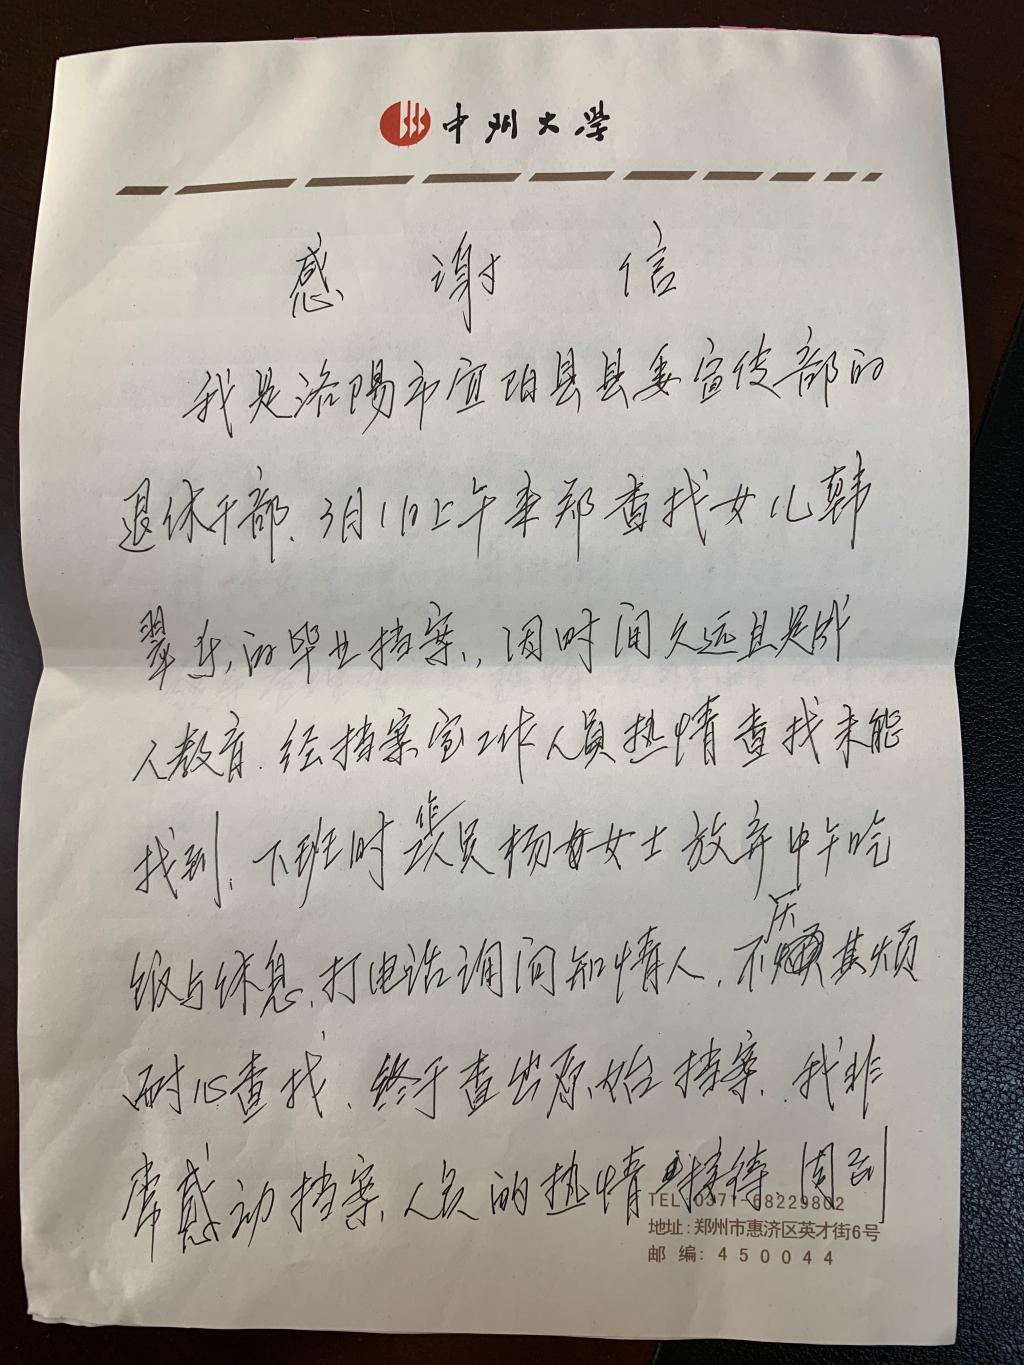 中州大学
感谢信
我是洛阳市宜阳县县委宣传部的
退休干部、3月1日上午来郑查找女儿韩
翠东的毕业档案,因时间久远且是成
人教育.经档案室工作人员热情查找未能
找到.下班时员杨女士放弃中午吃
饭与休息,打电话询问知情人,不厌其烦
耐心查找、终于查出原始档案.我非
常感动档案人员的热情接待周到
TEL:0371-68229802
地址:郑州市惠济区英才街6号
邮 编: 450044